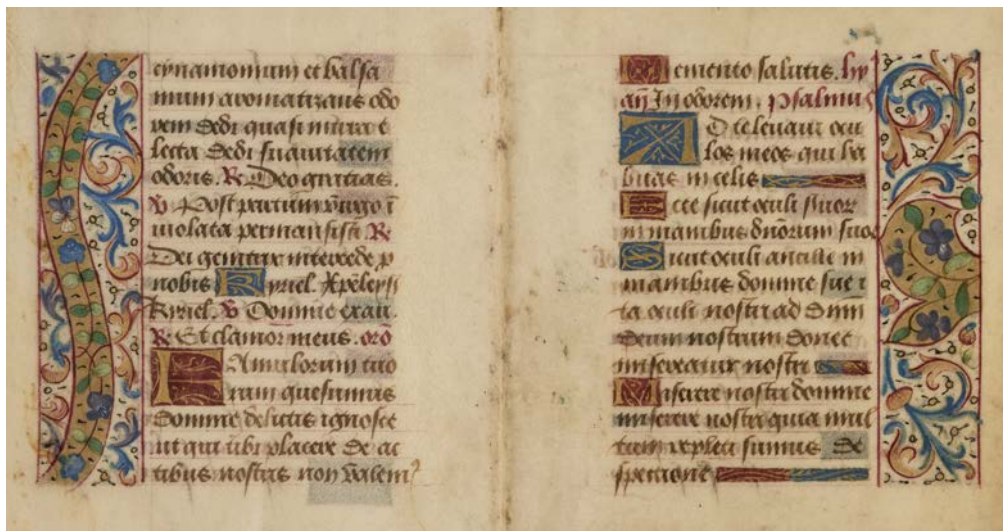 cynamomum et balsa
mum aromatizans odo
rem dedi quasi mirra e
lecta dedi suavitatem
odoris. R Deo gratias.
V Post partum virgo i
violata permansisti R
Dei genitrix intercede p
nobis Kyriel. Xpeleys
Kyriel. V Domine exau.
R Et clamor meus. oro
Famulorum tuo
rum quesumus
Domine delictis ignosce
ut qui tibi placere de ac
tibus nostris non valem
Memento salutis. hy
an In odorem. psalmus
Ad te levavi ocu
los meos qui ha
bitas in celis
Ecce sicut oculi suor
in manibus dnorum suor
Sicut oculi ancille in
manibus domine sue i
ta oculi nostri ad dnm
deum nostrum donec
misereatur nostri
Miserere nostri domine
miserere nostri quia mul
tum repleti sumus de
spectione